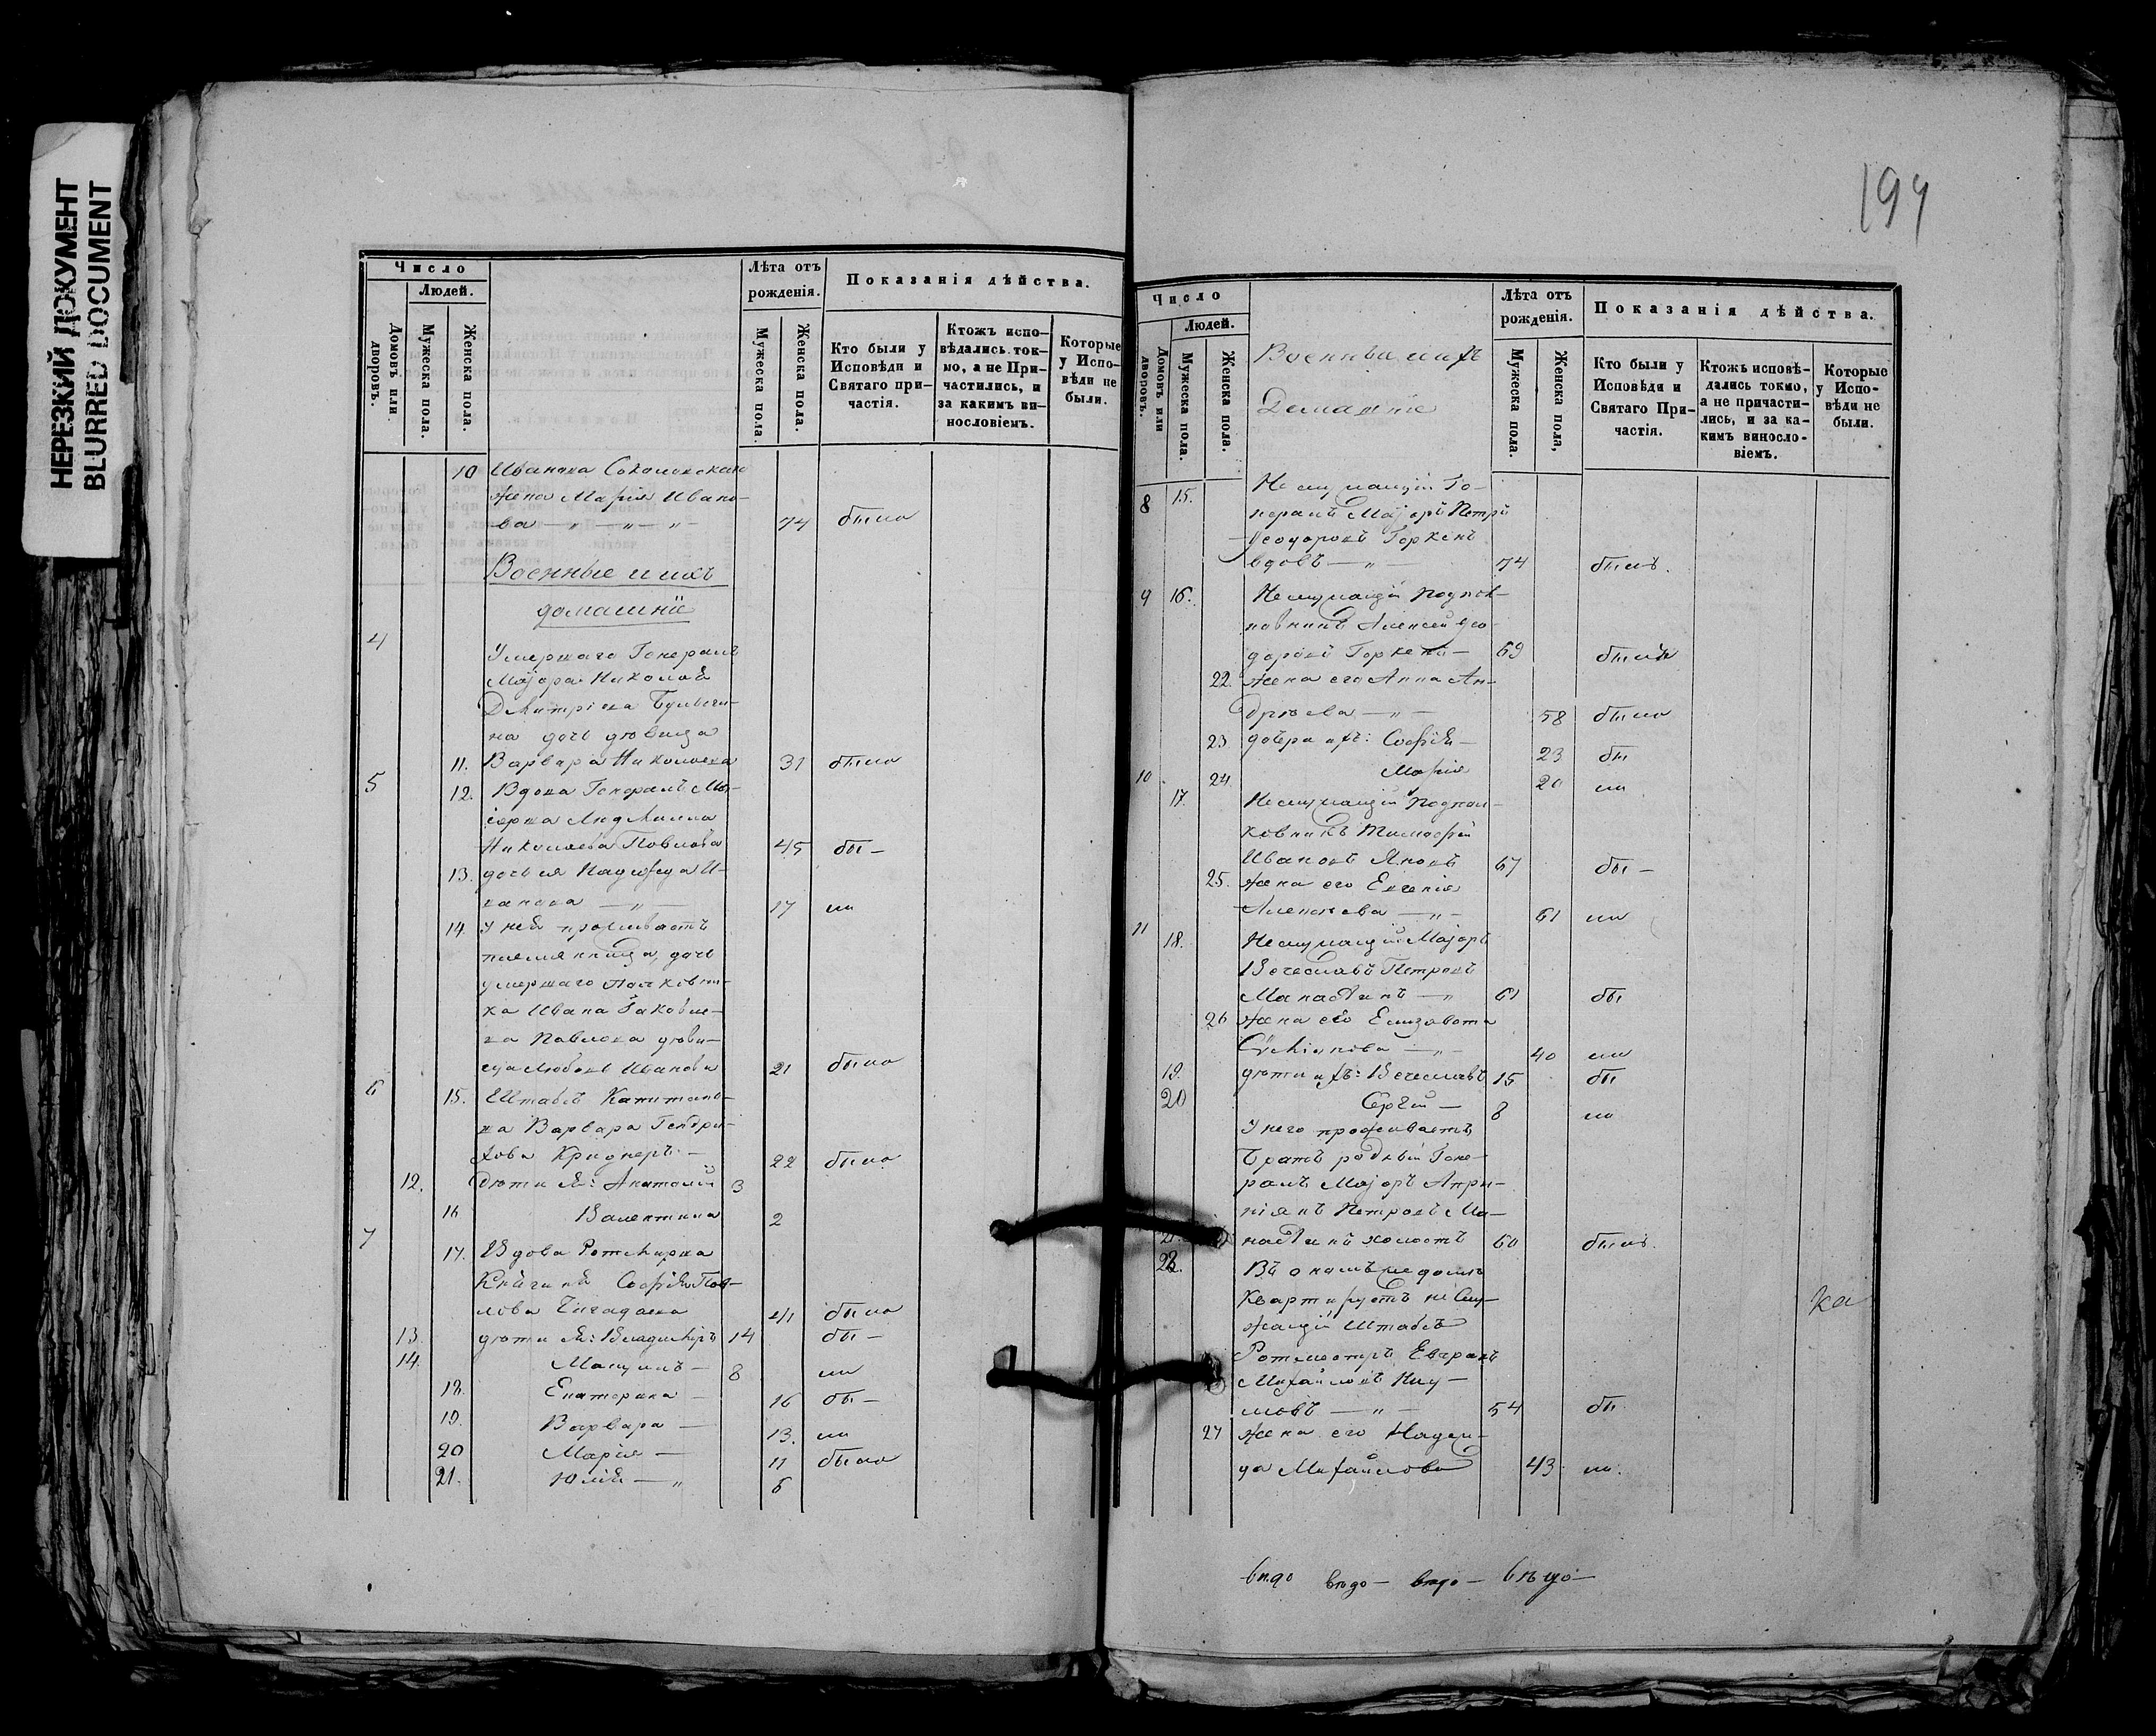 НЕРЕЗКИЙ ДОКУМЕНТ
BLURRED DOCUMENT
Число
Людей.
Домовъ или дворовъ.
Мужеска пола.
Женска пола.
Лѣта отъ рожденія.
Мужеска пола.
Женска пола.
Показанія дѣйства.
Кто были у Исповѣди и Святаго при-
частія.
Ктожъ испо-
вѣдались ток-
мо, а не При-
частились, и
за какимъ ви-
нословіемъ.
Которые
у Испо-
вѣди не
были.
10 Иванова
жена Марія Ивано-
ва — „ — „ — „ — 74 была
Военные и ихъ
домашніе
4 Умершаго Генералъ
Маіора Николая
Дмитріева
на дочь дѣвица
11. Варвара Николаева 31 была
5 12. Вдова Генералъ Ма-
іорша Людмилла
Николаева Павлова 45 бы —
13. дочь ея Надежда И-
ванова — „ — 17 ла
14. У ней проживаетъ
племянница, дочь
умершаго Полковни-
ка Ивана Іаковле-
ва Павлова дѣви-
ца Любовь Иванова 21 была
6 15. Штабсъ Капитанъ-
ша Варвара
Криднеръ — 22 была
12. дѣти ея: Анатолій 3
16 Валентина 2
7 17. Вдова Ротмирша
Княгиня Софія Пав-
лова 41 была
13. дѣти ея: Владиміръ 14 бы —
14. — 8 ли
18. Екатерина — 16 бы —
19. Варвара — 13. ли
20 Марія — 11 была
21. Юлія — „ 6
194
Число
Людей.
Домовъ или дворовъ.
Мужеска пола.
Женска пола.
Военные и ихъ
Домашніе
Лѣта отъ рожденія.
Мужеска пола.
Женска пола,
Показанія дѣйства.
Кто были у
Исповѣди и
Святаго При-
частія.
Ктожъ исповѣ-
дались токмо,
а не причасти-
лись, и за ка-
кимъ виносло-
віемъ.
Которые
у Испо-
вѣди не
были.
8 15. Неслужащій Ге-
нералъ Маіоръ Петръ
Ѳеодоровъ Геркенъ
вдовъ — „ — 74 былъ.
9 16. Неслужащій Подпол-
ковникъ Алексей Ѳео-
доровъ Геркенъ — 69 былъ
22. жена его Анна Ан-
дреева — „ — 58 была
23 дочери ихъ: Софія — 23 бы
10 24 Марія 20 ли
17. Неслужащій Подпол-
ковникъ Тимофей
Ивановъ 67 бы —
25. жена его Евгенія
Алексеева — „ — 61 ли
11 18. Неслужащій Маіоръ
Вечеславъ Петровъ
Манастинъ — „ 61 бы
26 жена его Елизавета
— „ — 40 ли
19. дѣти ихъ: Вечеславъ 15 бы
20 Сергій — 8 ли
У него проживаетъ
братъ родный Гене-
ралъ Маіоръ Андри-
аянъ Петровъ Ма-
21. настинъ холостъ 60 былъ.
22. Въ ономъ же домѣ
Квартируетъ не слу-
жащій Штабсъ
Ротмистръ Евграфъ
Михайловъ Нау-
мовъ — „ — 54 бы
27 жена его Надеж-
да Михайлова 43 ли.